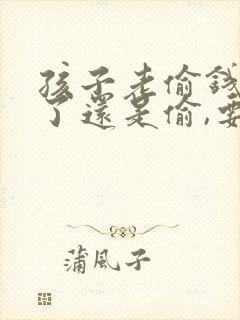 孩子老偷錢
了還是偷,要
蒲風子